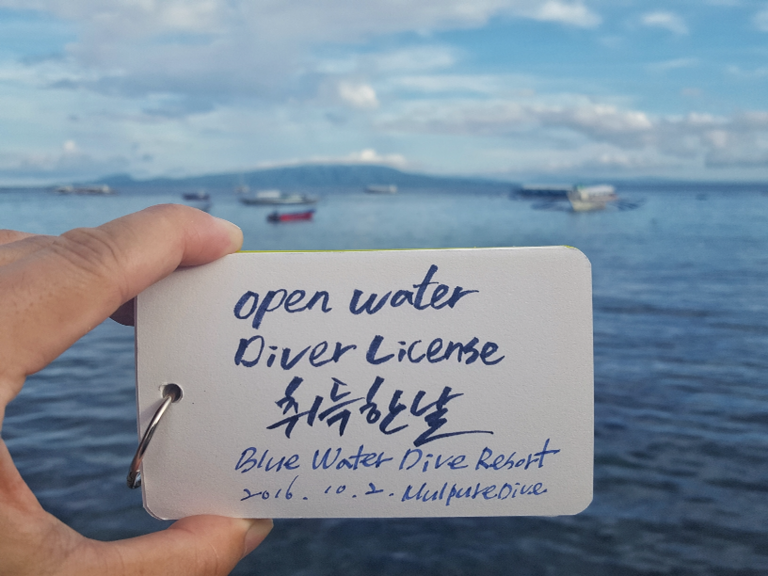 open water
Diver License
취득한날
Blue Water Dive Resort
2016. 10. 2. MulpureDive